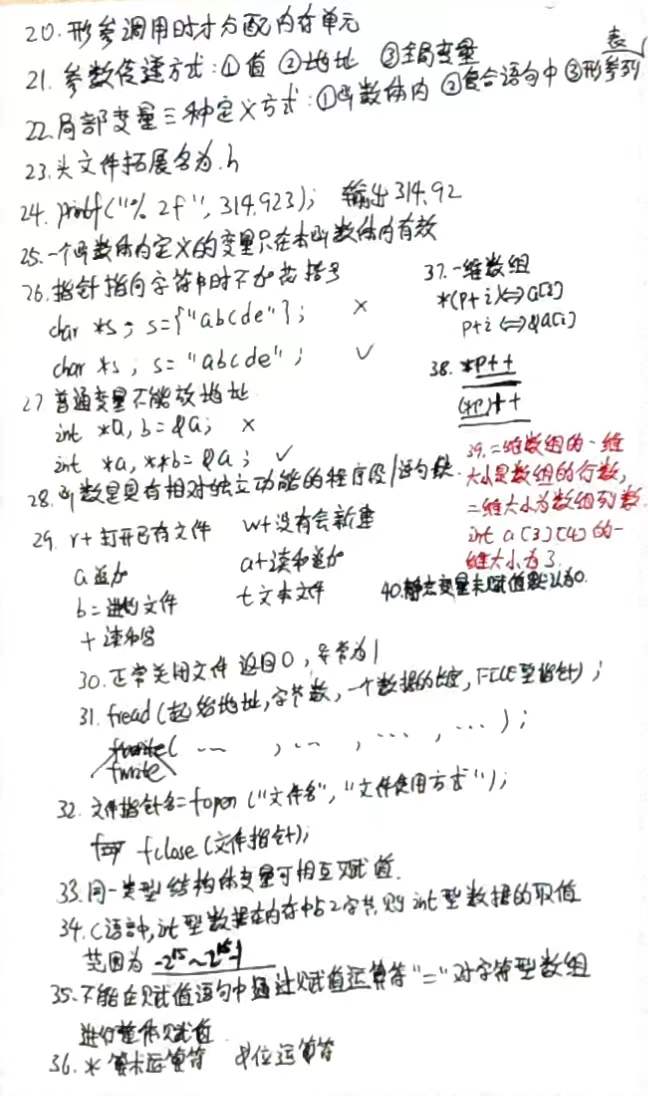 20.形参调用时才分配内存单元
21.参数传递方式:①值 ②地址 ③全局变量
22.局部变量三种定义方式:①函数体内 ②复合语句中 ③形参列表
23.头文件拓展名为.h
24. printf("%.2f", 314.923); 输出314.92
25.一个函数体内定义的变量只在本函数体内有效
26.指针指向字符串时不加花括号
char *s; s={"abcde"}; ×
char *s; s="abcde"; ✓
27 普通变量不能放地址
int *a, b=&a; ×
int *a, **b=&a; ✓
28.函数是具有相对独立功能的程序段/语句块.
29. r+打开已有文件 w+没有会新建
a追加 a+读和追加
b=进制文件 t文本文件
+读和写
30.正常关闭文件返回0,异常为1
31. fread(起始地址,字节数,一个数据的长度,FILE型指针);
fwrite( … , … , … , … );
32.文件指针名=fopen("文件名","文件使用方式");
fclose(文件指针);
33.同一类型结构体变量可相互赋值.
34.C语言中,int型数据在内存中占2字节,则int型数据的取值
范围为 -2¹⁵~2¹⁵-1
35.不能在赋值语句中通过赋值运算符"="对字符型数组
进行整体赋值
36. *算术运算符 &位运算符
37.一维数组
*(p+i)⇔a[i]
p+i⇔&a[i]
38. *p++
(*p)++
39.二维数组的一维
大小是数组的行数,
二维大小为数组列数.
int a[3][4]的一
维大小为3.
40.静态变量未赋值默认为0.